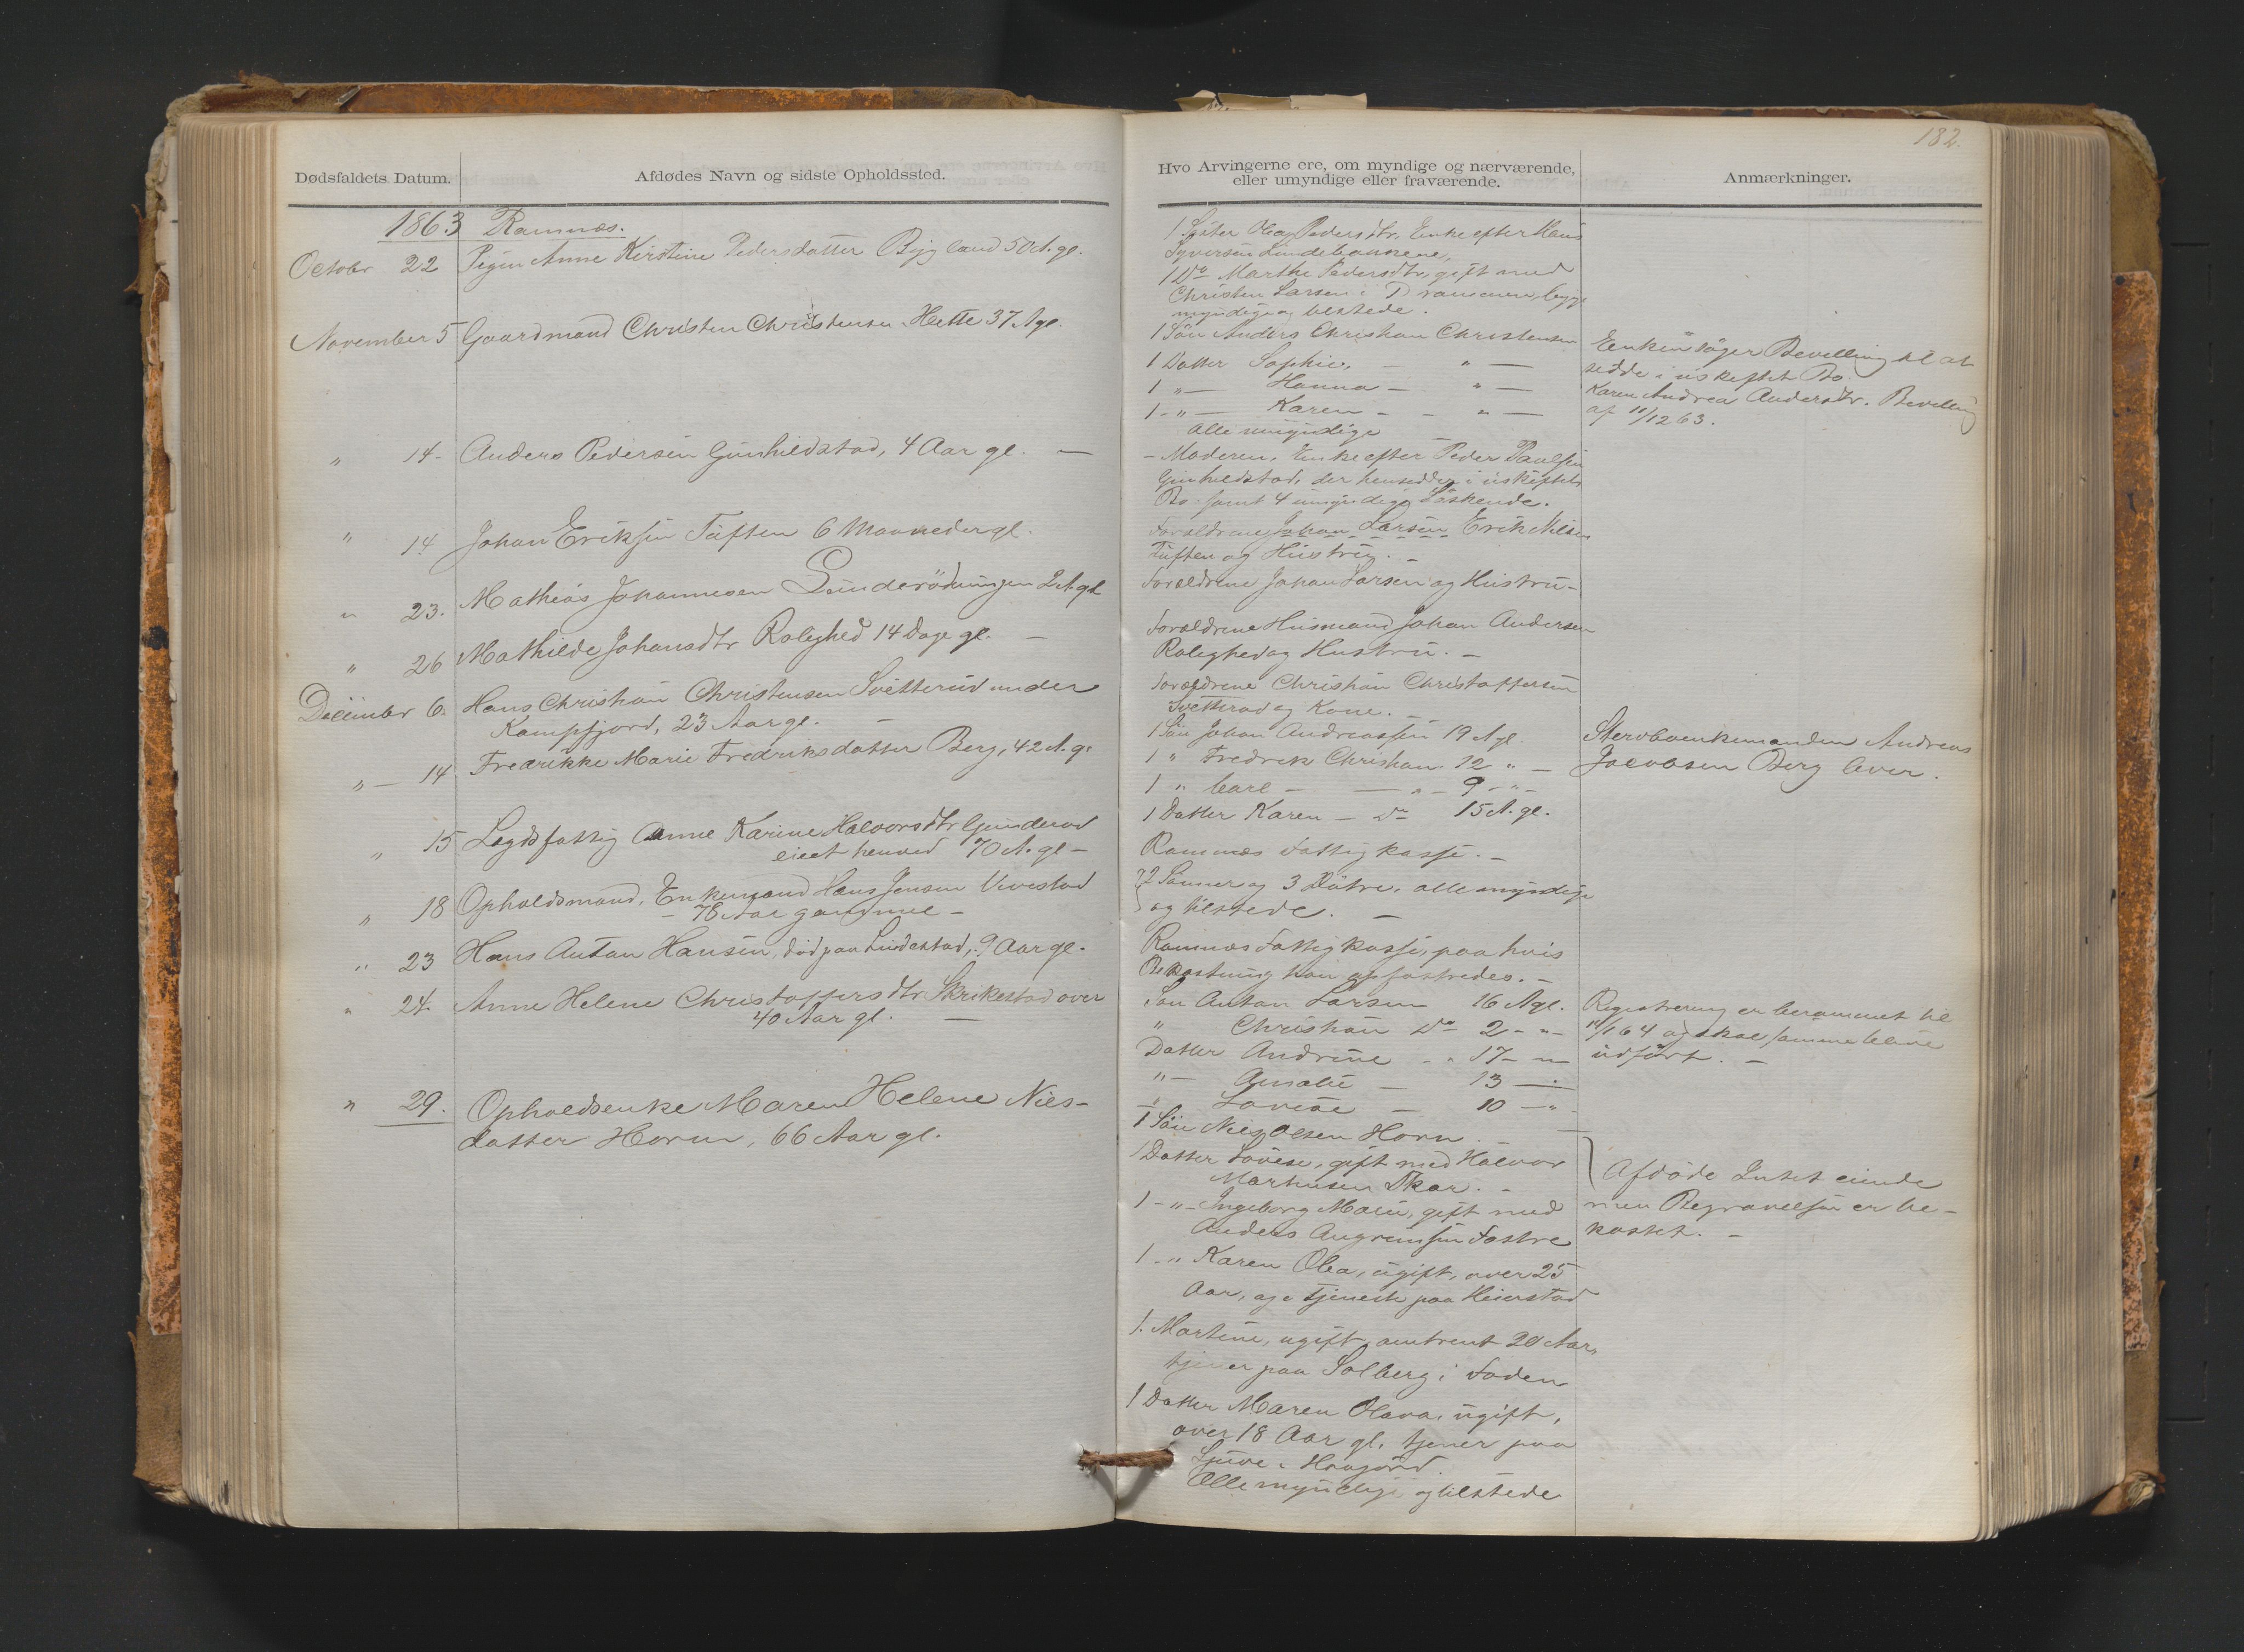 182.
Dødsfaldets Datum.
Afdødes Navn og sidste Opholdssted.
Hvo Arvingerne ere, om myndige og nærværende,
eller umyndige eller fraværende.
Anmærkninger.
1863 Ramnæs.
October 22 Pigen Anne Kirstine Pedersdatter Bjgland 50 A. gl.
November 5 Gaardmand Christen Christensen Hette 37 A gl.
" 14- Anders Pedersen Gunhildstad, 4 Aar gl. —
" 14 Johan Eriksen Tuften 6 Maaneder gl.
" 23. Mathias Johannesen Linderödningen 2 A. gl
" 26 Mathilde Johansdtr Rolighed 14 Dage gl. —
December 6. Hans Christian Christensen Svetterud under
Kampfjord, 23 Aar gl. —
" — 14 Fredrikke Marie Fredriksdatter Berg, 42 A. gl
" 15 Lægdsfattig Anne Karine Halvorsdtr Gunderød
eiect henved 70 A. gl —
" 18 Opholdsmand, Enkemand Hans Jensen Vivestad
— 78 Aar gammel —
" 23 Hans Anton Hansen, död paa Lindestad, 9 Aar gl.
" 24. Anne Helene Christoffersdtr Skrikestad over
40 Aar gl. —
" 29. Opholdsenke Maren Helene Niels-
datter Horn, 66 Aar gl.
1 Söster Olea Pedersdtr. Enke efter Hans
Syversen Lindebakkene,
1 Do Marthe Pedersdtr, gift med
Christen Larsen i Drammen, begge
myndige og tilstede.
1 Sön Anders Christian Christensen
1 Datter Sophie, — " —
1 " — Hanna — " —
1 - " — Karen - - " —
alle umyndige
- Moderen, Enke efter Peder Paulsen
Gunhildstad, der hensidder i uskiftet
Bo samt 4 umyndige Söskende.
Forældrene Johan Larsen Erik Nilsen
Tuften og Hustru. —
Forældrene Johan Larsen og Hustru —
Forældrene Husmand Johan Andersen
Rolighed og Hustru. —
Forældrene Christian Christoffersen
Svetterud og Kone. —
1 Sön Johan Andreassen 19 A gl.
1 " Fredrik Christian 12 " —
1 " Carl — — " — 9 - " -
1 Datter Karen — Do 15 A. gl.
Ramnæs Fattigkasse. —
2 Sönner og 3 Döttre, alle myndige
og tilstede. —
Ramnæs Fattigkasse, paa hvis
Bekostning han opfostredes. —
Sön Anton Larsen 16 A gl.
" Christian Do 2 - " -
Datter Andrine - " 17 — " —
" — Amalie — 13 —
" Lovise — 10 — " -
1 Sön Niels Olsen Horn. —
1 Datter Lovise, gift med Halvor
Martinsen Skar. —
1 - " - Ingeborg Marie, gift med
Anders Angrimsen Fostre
1 - " Karen Olea, ugift, over 25
Aar, og i tjeneste paa Heierstad
1. Martine, ugift, omtrent 20 Aar,
tjener paa Solberg i Foden
1 Datter Maren Olava, ugift,
over 18 Aar gl. tjener paa
Ljuve i Haugörd.
Alle myndige og tilstede
Enken söger Bevilling til at
sidde i uskiftet Bo.
Karen Andrea Andersdtr. Bevilling
af 11/12 63.
Stervboenkemanden Andreas
Jacobsen Berg lever.
Registrering er berammet til
14/1 64 og skal samme blive
udfört. —
Afdöde Intet eiende
men Begravelsen er be-
kostet. —